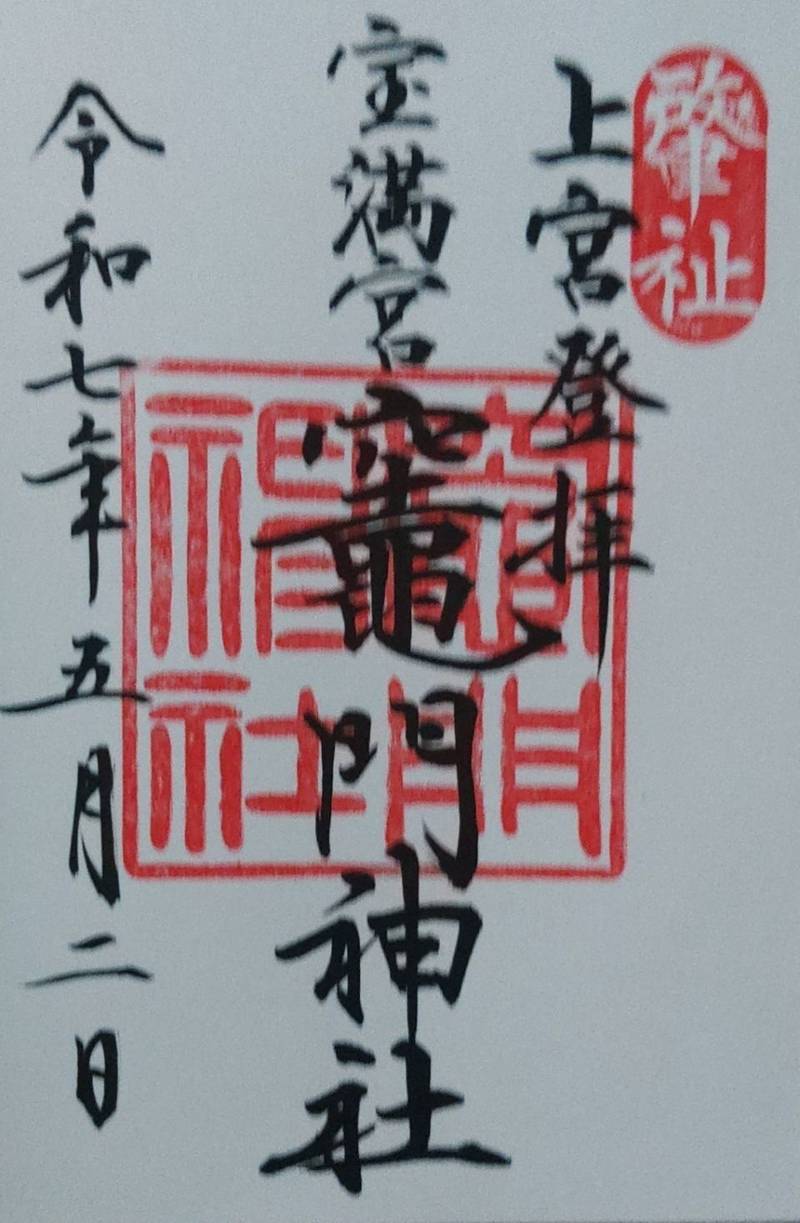 肇祉
上宮登拝
宝満宮竈門神社
竈門神社
令和七年五月二日